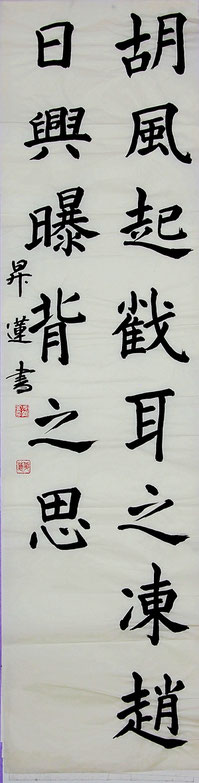 胡風起戳耳之凍趙
日興曝背之思
昇蓮書